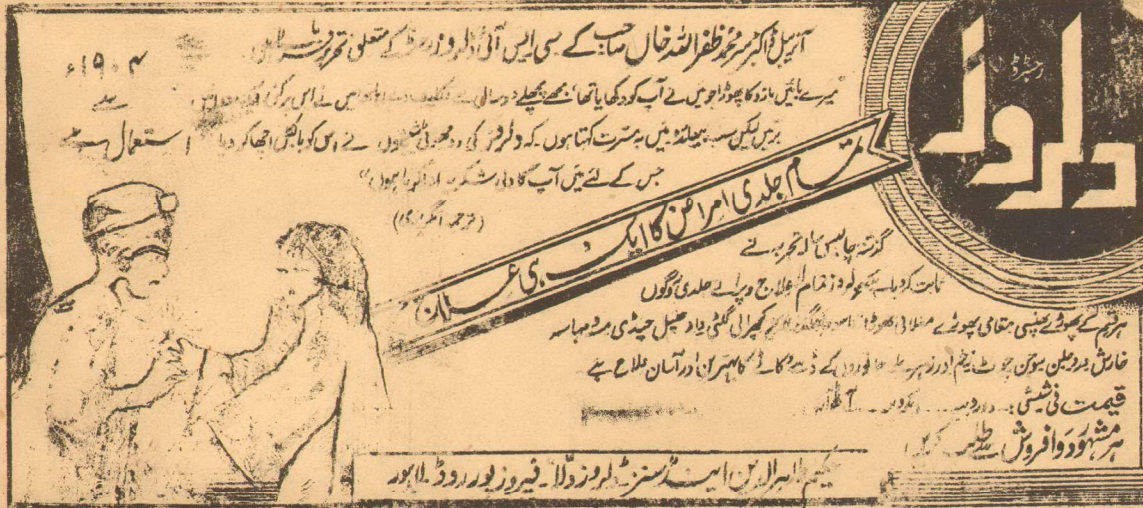 آنریبل ڈاکٹر سر محمد ظفر اللہ خاں صاحب کے سی ایس آئی دلروز کے متعلق تحریر فرماتے
۱۹۰۴ء
سے
استعمال
میرے بائیں بازو کا پھوڑا جو میں نے آپ کو دکھایا تھا مجھے پچھلے دو سال سے تکلیف نے اس
میں بہ مسرت کہتا ہوں۔ کہ دلروز کی دو چھوٹی نے اس کو بالکل اچھا کر دیا
جس کے لئے میں آپ کا دلی شکریہ ادا کرتا ہوں"
(ترجمہ انگریزی)
رجسٹرڈ
دلروز
تمام جلدی امراض کا ایک ہی علاج
گذشتہ چالیس سالہ تجربہ نے
ثابت کر دیا ہے کہ دلروز تمام لاعلاج و پرانے جلدی روگوں
ہر قسم کے پھوڑے پھنسی مقامی پھوڑے گلٹی داد چنبل
خارش سوجن چوٹ زخم اور زہریلے جانوروں کے کاٹے کا بہترین اور آسان علاج ہے
قیمت فی شیشی
ہر مشہور دوا فروش سے طلب کریں
حکیم الدین اینڈ سنز دلروز ولا۔ فیروز پور روڈ۔ لاہور